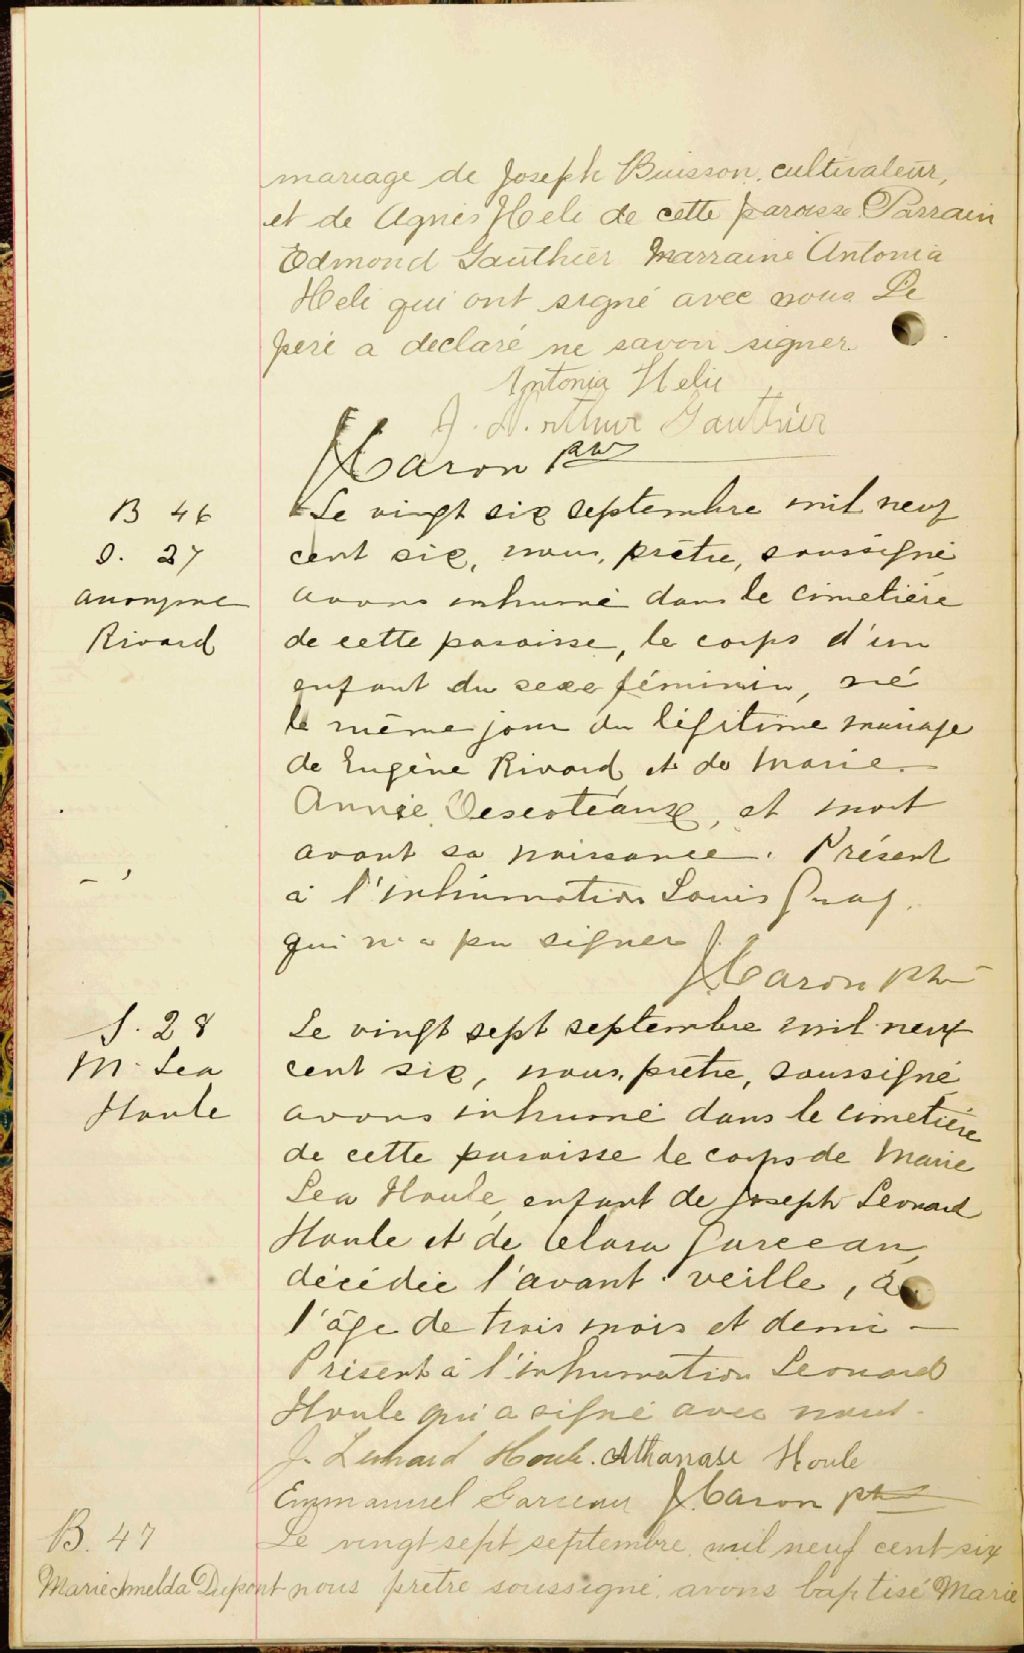 mariage de Joseph Buisson, cultivateur,
et de Agnes Heli de cette paroisse. Parrain
Edmond Gauthier Marraine Antonia
Heli qui ont signé avec nous Le
pere a declaré ne savoir signer.
Antonia Helie
J. Arthur Gauthier
Caron ptre
B 46
S. 27
anonyme
Rivard
Le vingt six septembre mil neuf
cent six, nous, prêtre, soussigné
avons inhumé dans le cimetière
de cette paroisse, le corps d'un
enfant du sexe féminin, né
le même jour du légitime mariage
de Eugène Rivard et de Marie
Annie Descoteaux, et mort
avant sa naissance. Présent
à l'inhumation Louis
qui n'a pu signer
Caron ptre
S. 28
M. Lea
Houle
Le vingt sept septembre mil neuf
cent six, nous, prêtre, soussigné
avons inhumé dans le cimetière
de cette paroisse le corps de Marie
Lea Houle, enfant de Joseph Leonard
Houle et de Clara Garceau,
décédée l'avant-veille, à
l'âge de trois mois et demi —
Présent à l'inhumation Leonard
Houle qui a signé avec nous.
J. Lenard Houle. Athanase Houle
Emmanuel Garceau J. Caron ptre
B. 47
Marie Imelda Dupont
Le vingt-sept septembre, mil neuf cent-six
nous prêtre soussigné avons baptisé Marie